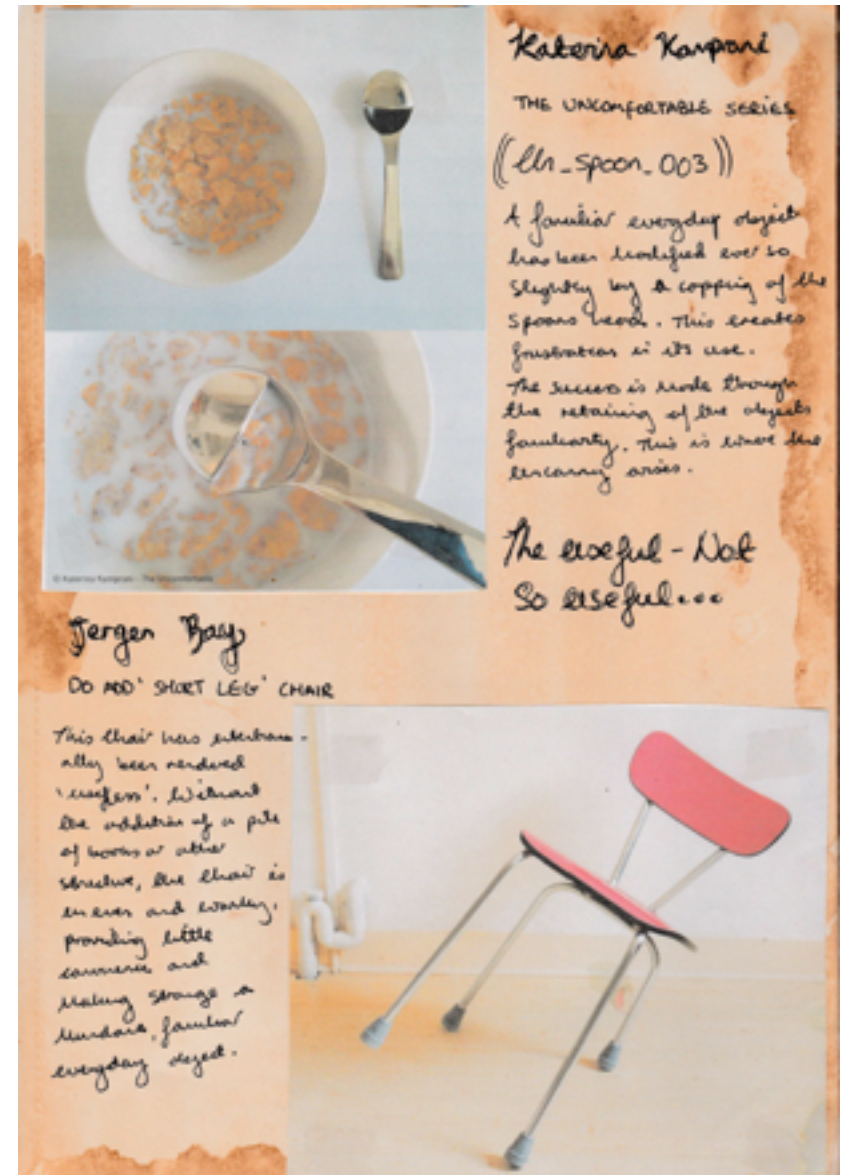 Katerina Kamprani
THE UNCOMFORTABLE SERIES
((Un_spoon_003))
A familiar everyday object
has been modified ever so
slightly by a capping of the
spoons head. This creates
frustration in its use.
The success is made through
the retaining of the objects
familiarity. This is where the
uncanny arises.
The useful - Not
So useful...
© Katerina Kamprani - The Uncomfortable
Jergen Bay
DO ADD 'SHORT LEG' CHAIR
This Chair has intention-
ally been rendered
'useless'. Without
the addition of a pile
of books or other
structure, the Chair is
uneven and wonky,
providing little
and
Making strange a
Mundane, familiar
everyday object.